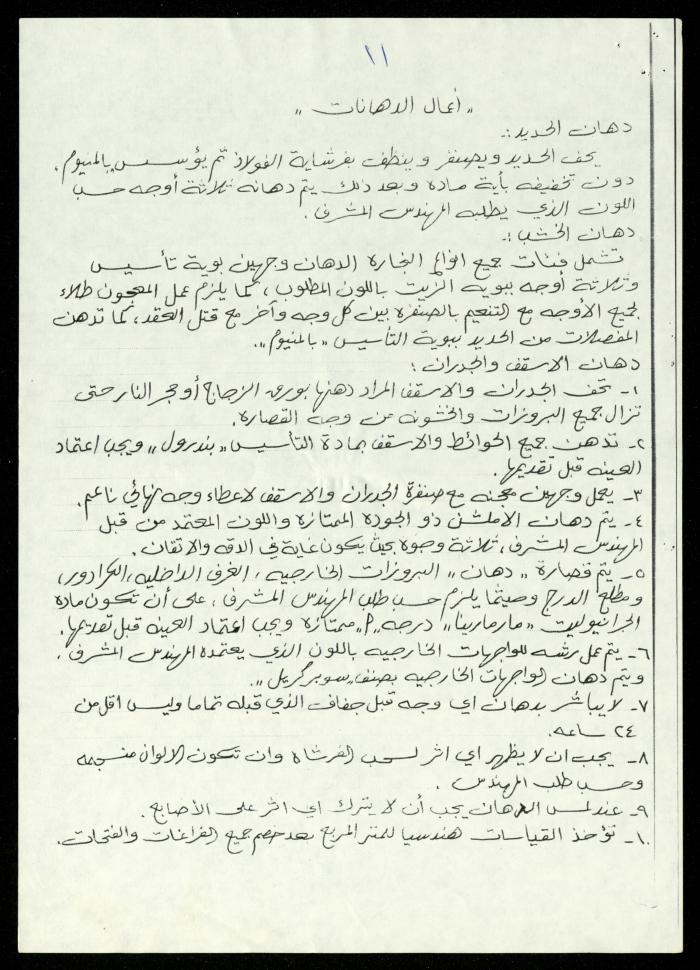 ١١
"أعمال الدهانات"
دهان الحديد :-
يحف الحديد ويصنفر وينظف بفرشاية الفولاذ ثم يؤسس بالمنيوم.
دون تخفيفه بأية ماده وبعد ذلك يتم دهانه ثلاثة أوجه حسب
اللون الذي يطلبه المهندس المشرف.
دهان الخشب :-
تشمل فئات جميع انواع النجاره الدهان وجهين بوية تأسيس
وثلاثة أوجه ببويه الزيت باللون المطلوب، كما يلزم عمل المعجون طلاء
لجميع الأوجه مع التنعيم بالصنفره بين كل وجه وآخر مع قتل العقد، كما تدهن
المفصلات من الحديد ببوية التأسيس "بالمنيوم".
دهان الاسقف والجدران :
١- تحف الجدران والاسقف المراد دهنها بورق الزجاج أو حجر النار حتى
تزال جميع البروزات والخشونه من وجه القصاره.
٢- تدهن جميع الحوائط والاسقف بمادة التأسيس "بندرول" ويجب اعتماد
العينه قبل تقديمها.
٣- يعمل وجهين معجنه مع صنفرة الجدران والاسقف لاعطاء وجه نهائي ناعم.
٤- يتم دهان الاملشن ذو الجوده الممتازه واللون المعتمد من قبل
المهندس المشرف، ثلاثة وجوه بحيث يكون غاية في الدقه والاتقان.
٥- يتم قصارة "دهان" البروزات الخارجيه، الغرف الداخليه، الكرادور،
ومطلع الدرج وحيثما يلزم حسب طلب المهندس المشرف، على أن تكون ماده
الجرانيوليت "مارمارينا" درجه "P" ممتازه ويجب اعتماد العينه قبل تقديمها.
٦- يتم عمل رشه للواجهات الخارجيه باللون الذي يعتمده المهندس المشرف.
ويتم دهان الواجهات الخارجيه بصنف "سوبر كريل".
٧- لا يباشر بدهان اي وجه قبل جفاف الذي قبله تماما وليس اقل من
٢٤ ساعه.
٨- يجب ان لا يظهر اي اثر لسحب الفرشاه وان تكون الالوان منسجمه
وحسب طلب المهندس.
٩- عند لمس الدهان يجب أن لا يترك اي اثر على الأصابع.
١٠- تؤخذ القياسات هندسيا للمتر المربع بعد خصم جميع الفراغات والفتحات.